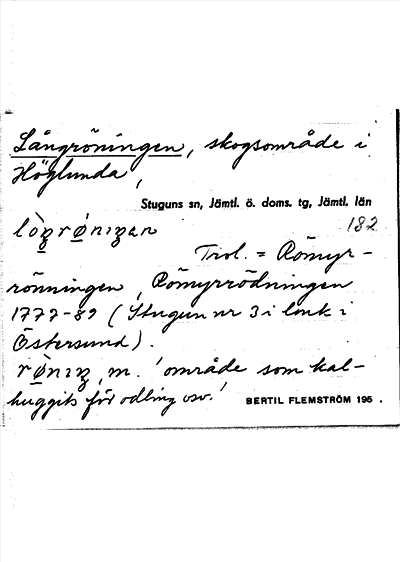 Långröningen, skogsområde i
Höglunda,
Stuguns sn, Jämtl. ö. doms. tg, Jämtl. län
182
Trol. = Römyr-
rönningen, Römyrrödningen
1777-89 (Stugun nr 3 i lmk i
Östersund).
m. 'område som kal-
huggits för odling osv.'
BERTIL FLEMSTRÖM 195 .